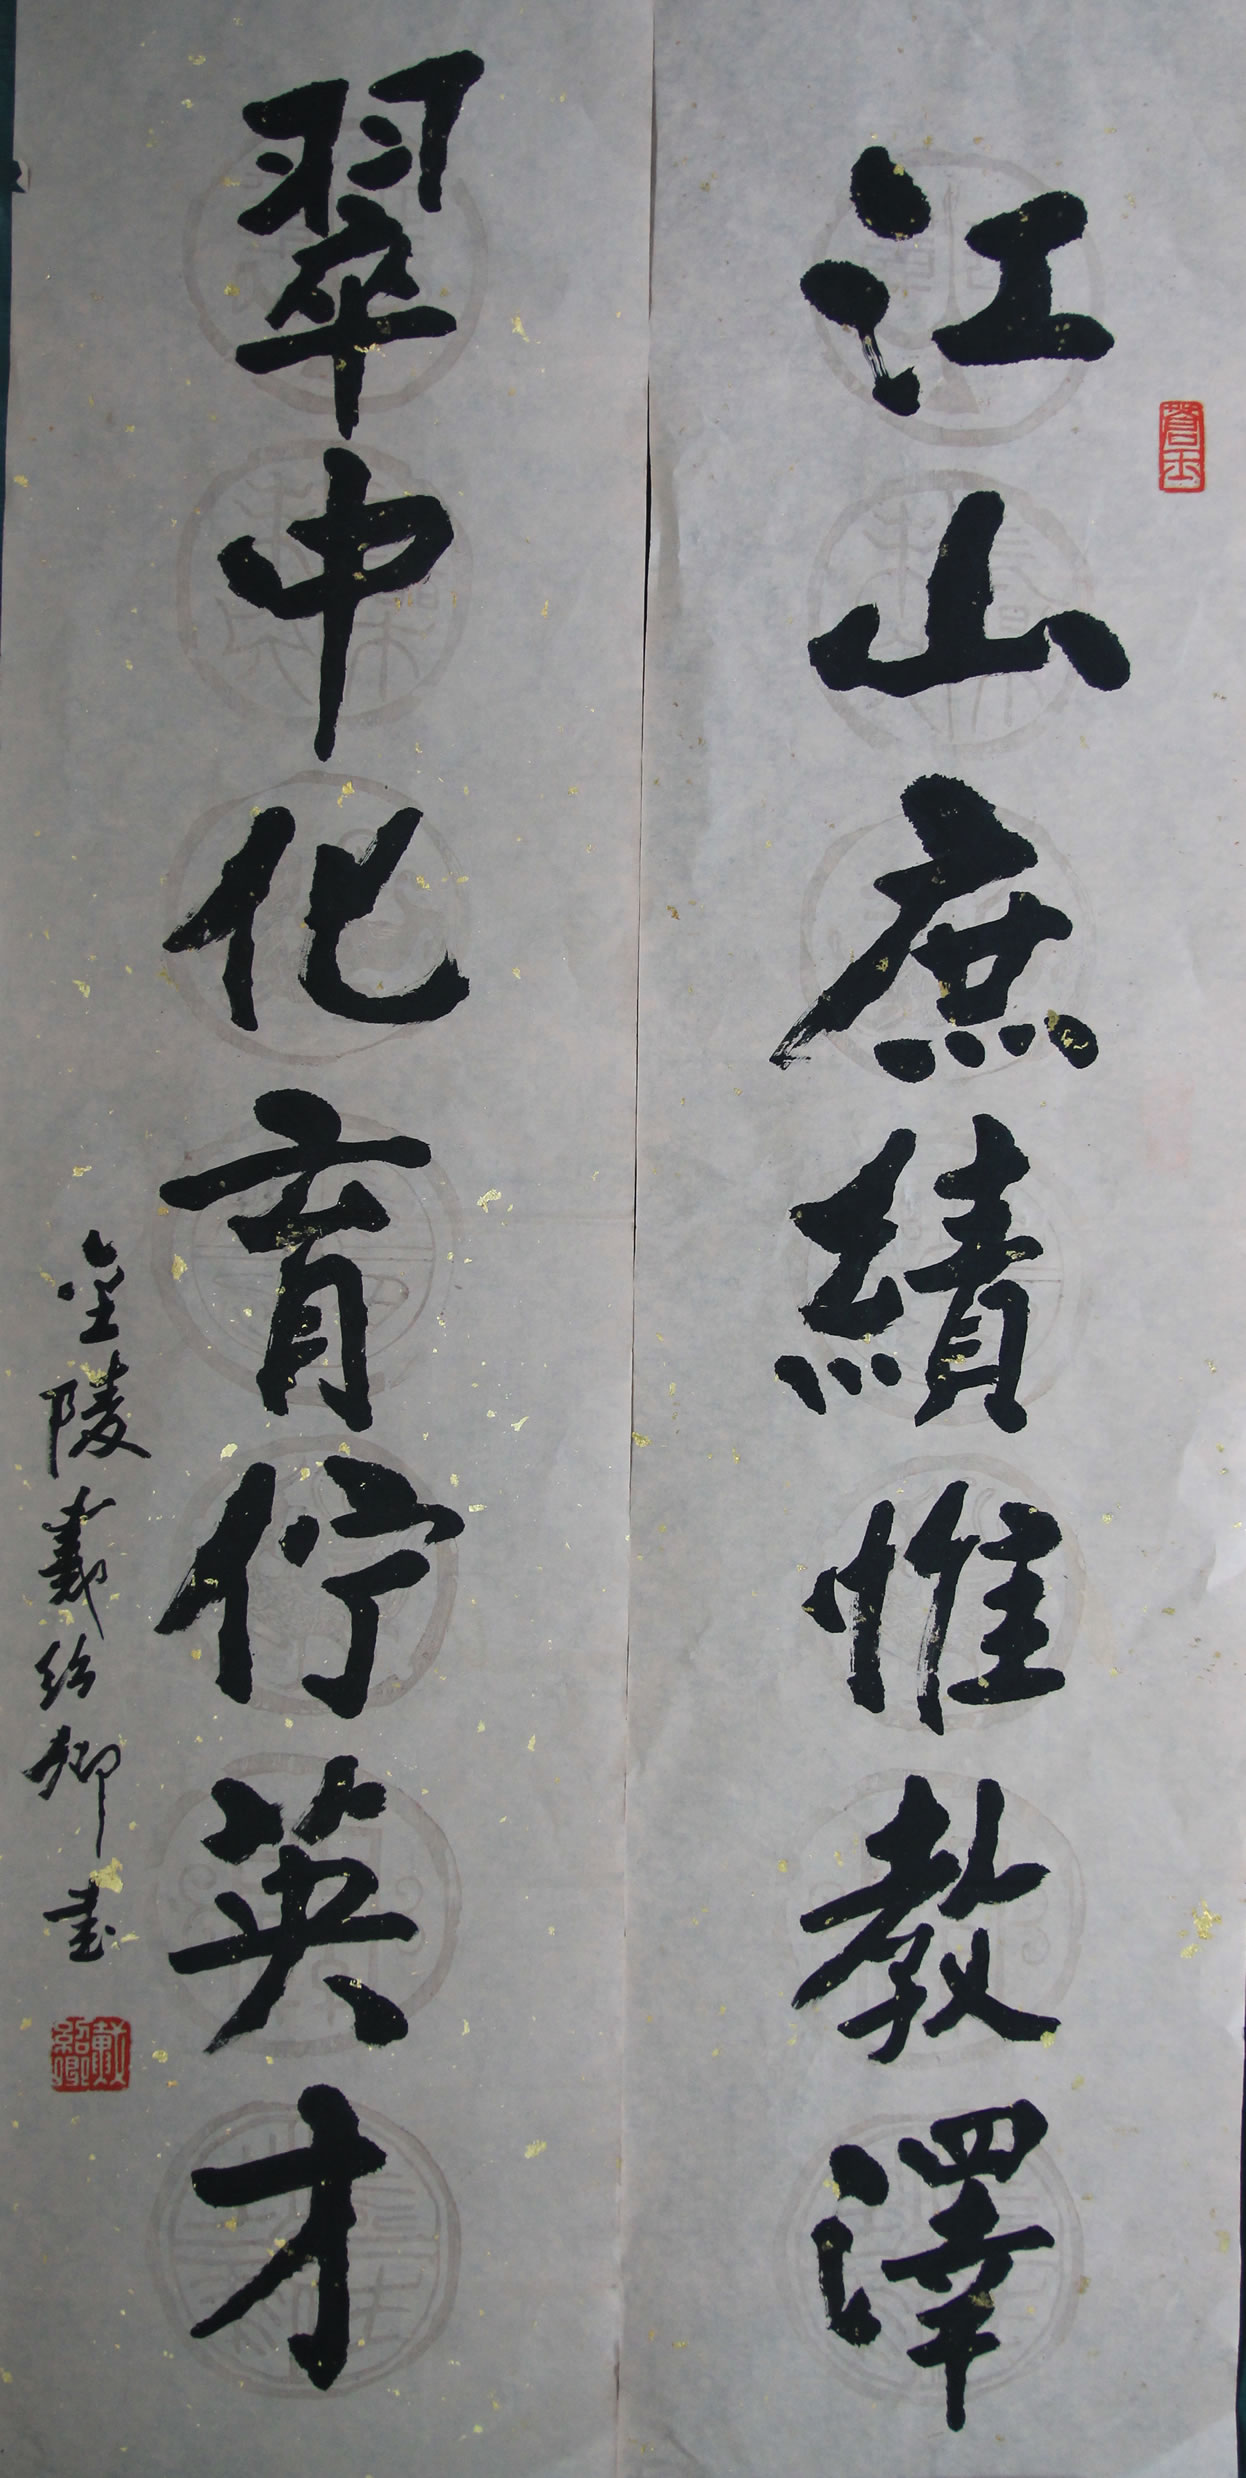 江山庶績惟教澤
翠中化育佇英才
金陵戴紹卿書
戴紹卿